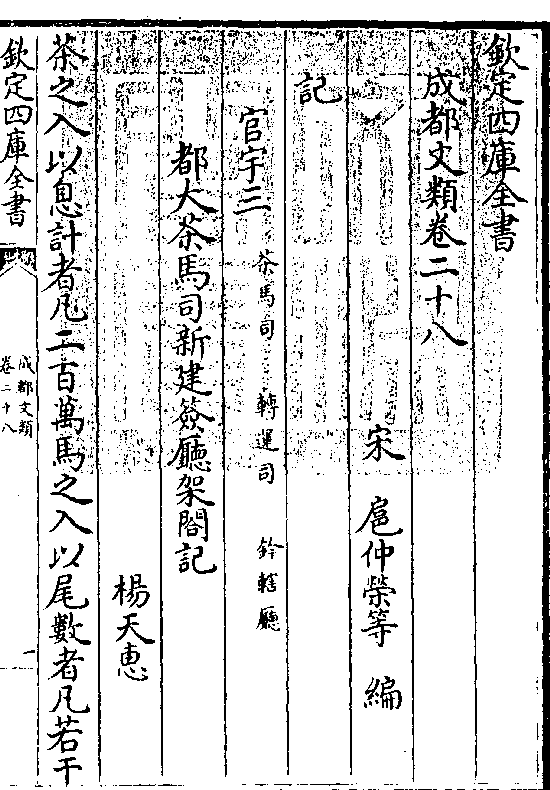 欽定四庫全書
成都文類卷二十八
宋 扈仲榮等 編
記
官宇三 茶馬司 轉運司 鈐轄廳
都大茶馬司新建簽廳架閣記
楊天惠
茶之入以息計者凡二百萬馬之入以尾數者凡若干
欽定四庫全書
成都文類
卷二十八
一